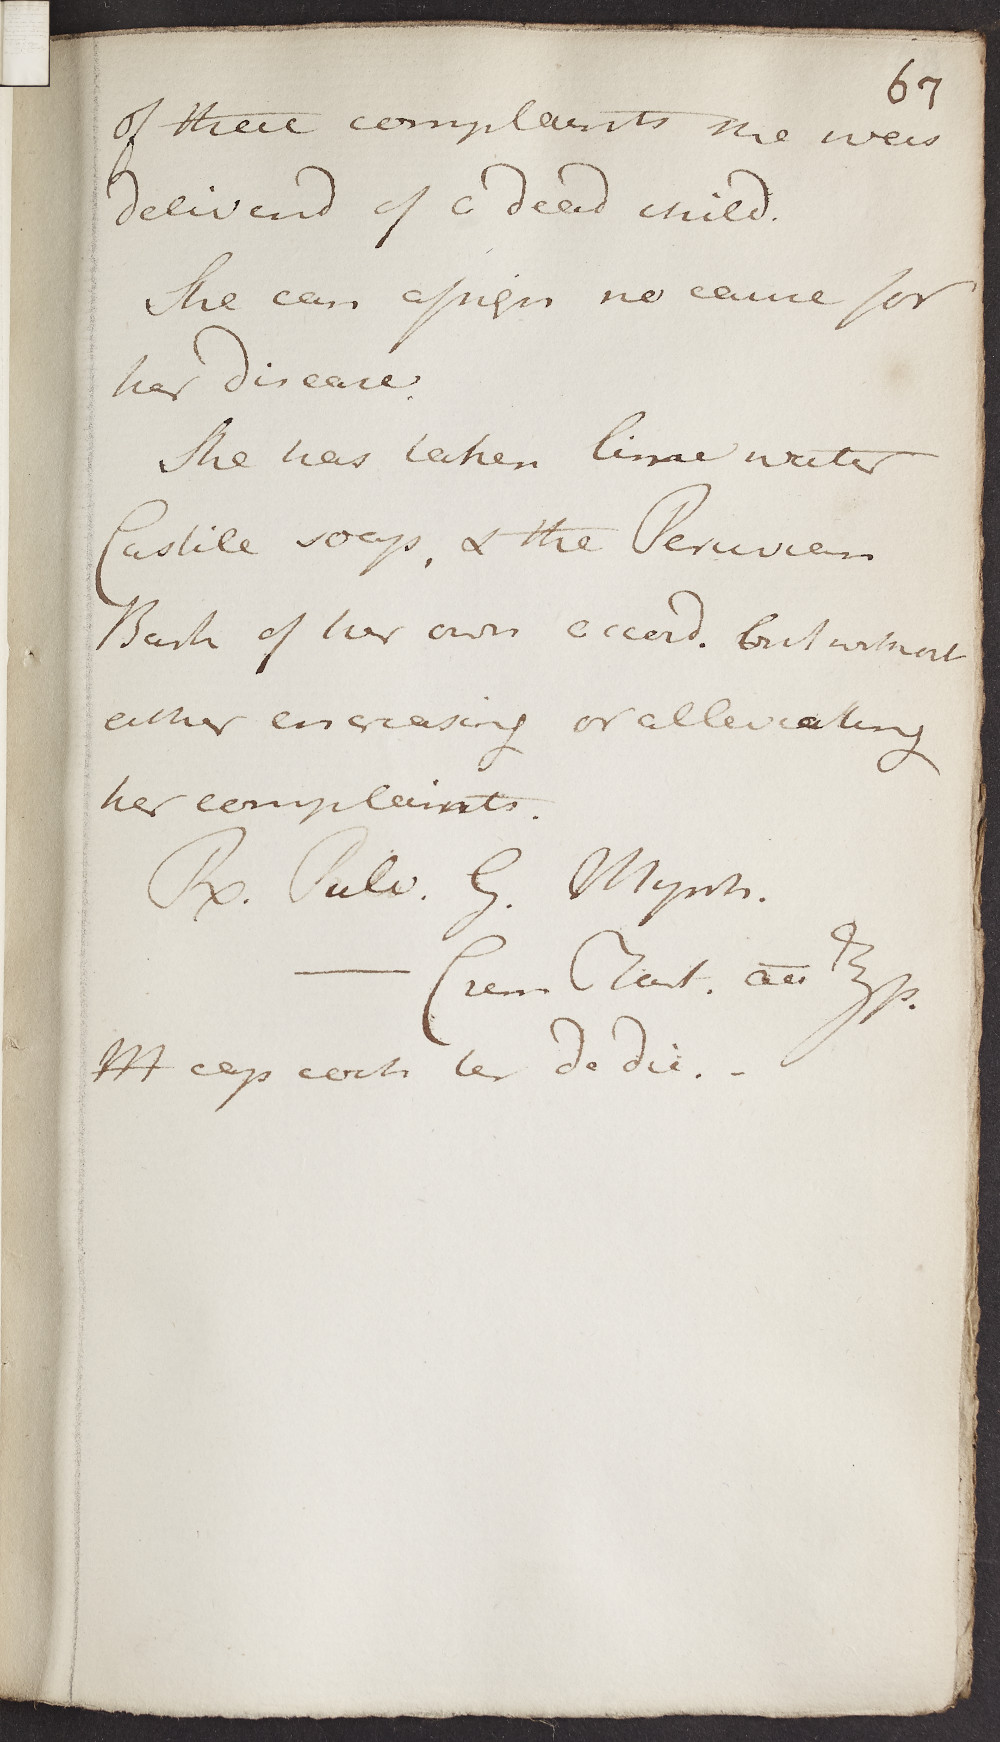 67
of these complaints she was
delivered of a dead child.
She can assign no cause for
her disease.
She has taken lime water
Castile soap, & the Peruvian
Bark of her own accord. but without
either encreasing or alleviating
her complaints.
Rx. Pulv. G. Myrrh.
— Crem Tart. aa ʒp.
M cap coch ter de die. -